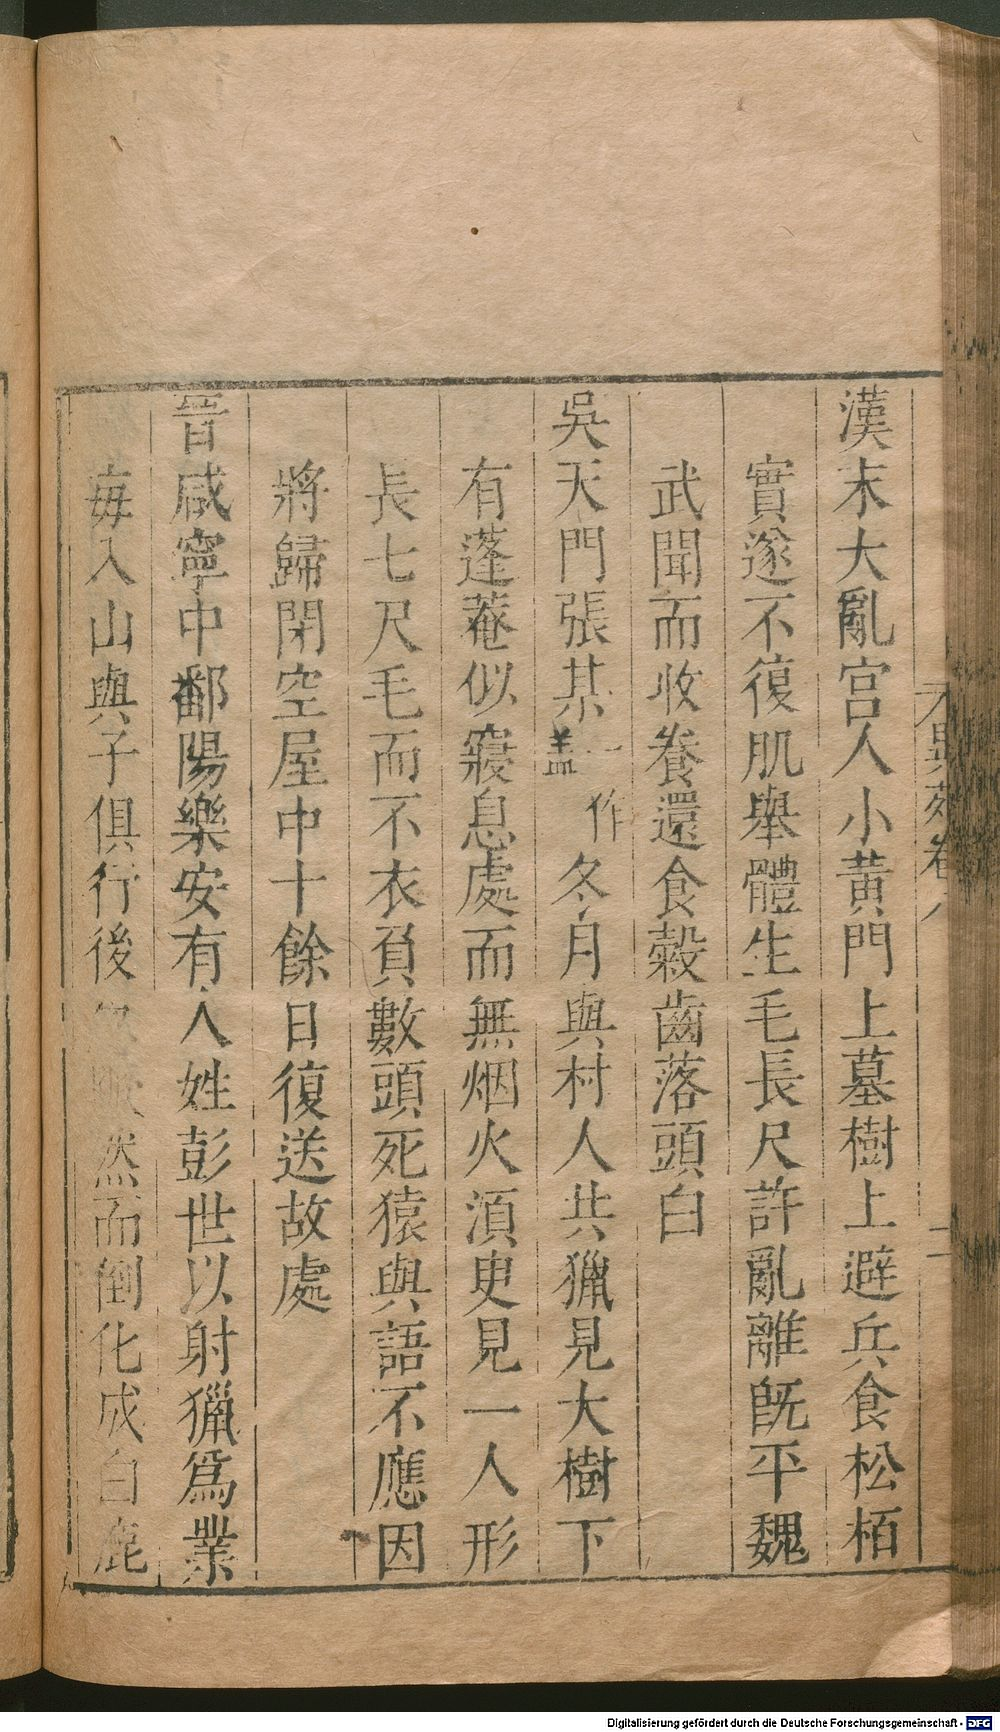 漢末大亂宫人小黄門上墓樹上避兵食松栢
實遂不復肌舉體生毛長尺許亂離旣平魏
武聞而收養還食穀齒落頭白
吳天門張某一作盖冬月與村人共獵見大樹下
有蓬菴似寢息處而無烟火湏臾見一人形
長七尺毛而不衣負數頭死猿與語不應因
將歸閉空屋中十餘日復送故處
晉咸寧中鄱陽樂安有人姓彭世以射獵爲業
每入山與子俱行後然而倒化成白鹿
卷八
Digitalisierung gefördert durch die Deutsche Forschungsgemeinschaft - DFG